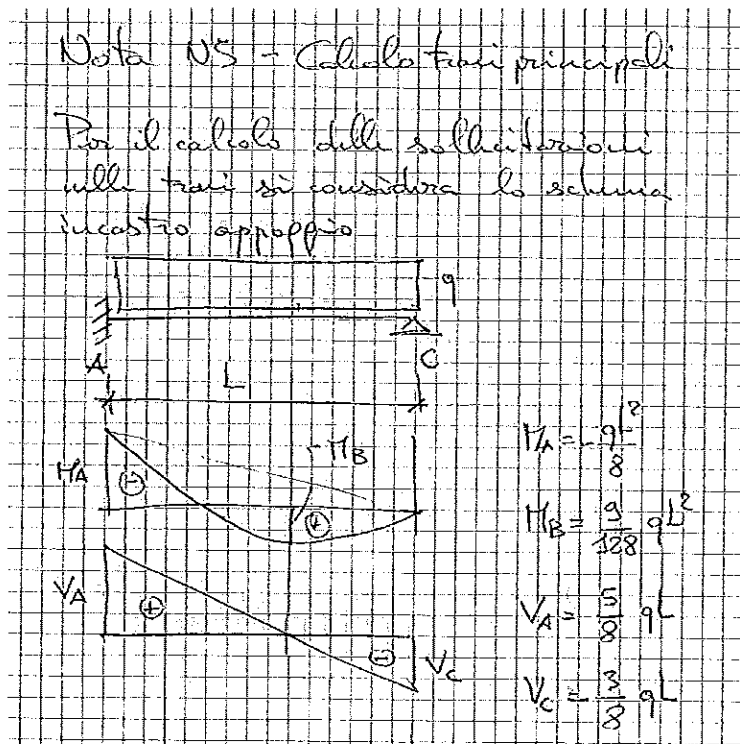 Nota N5 - Calcolo travi principali
Per il calcolo delle sollecitazioni
nelle travi si considera lo schema
incastro appoggio
q
A C
L
M_A ⊖ M_B ⊕
V_A ⊕ ⊖ V_C
M_A = - qL²/8
M_B = 9/128 qL²
V_A = 5/8 qL
V_C = 3/8 qL